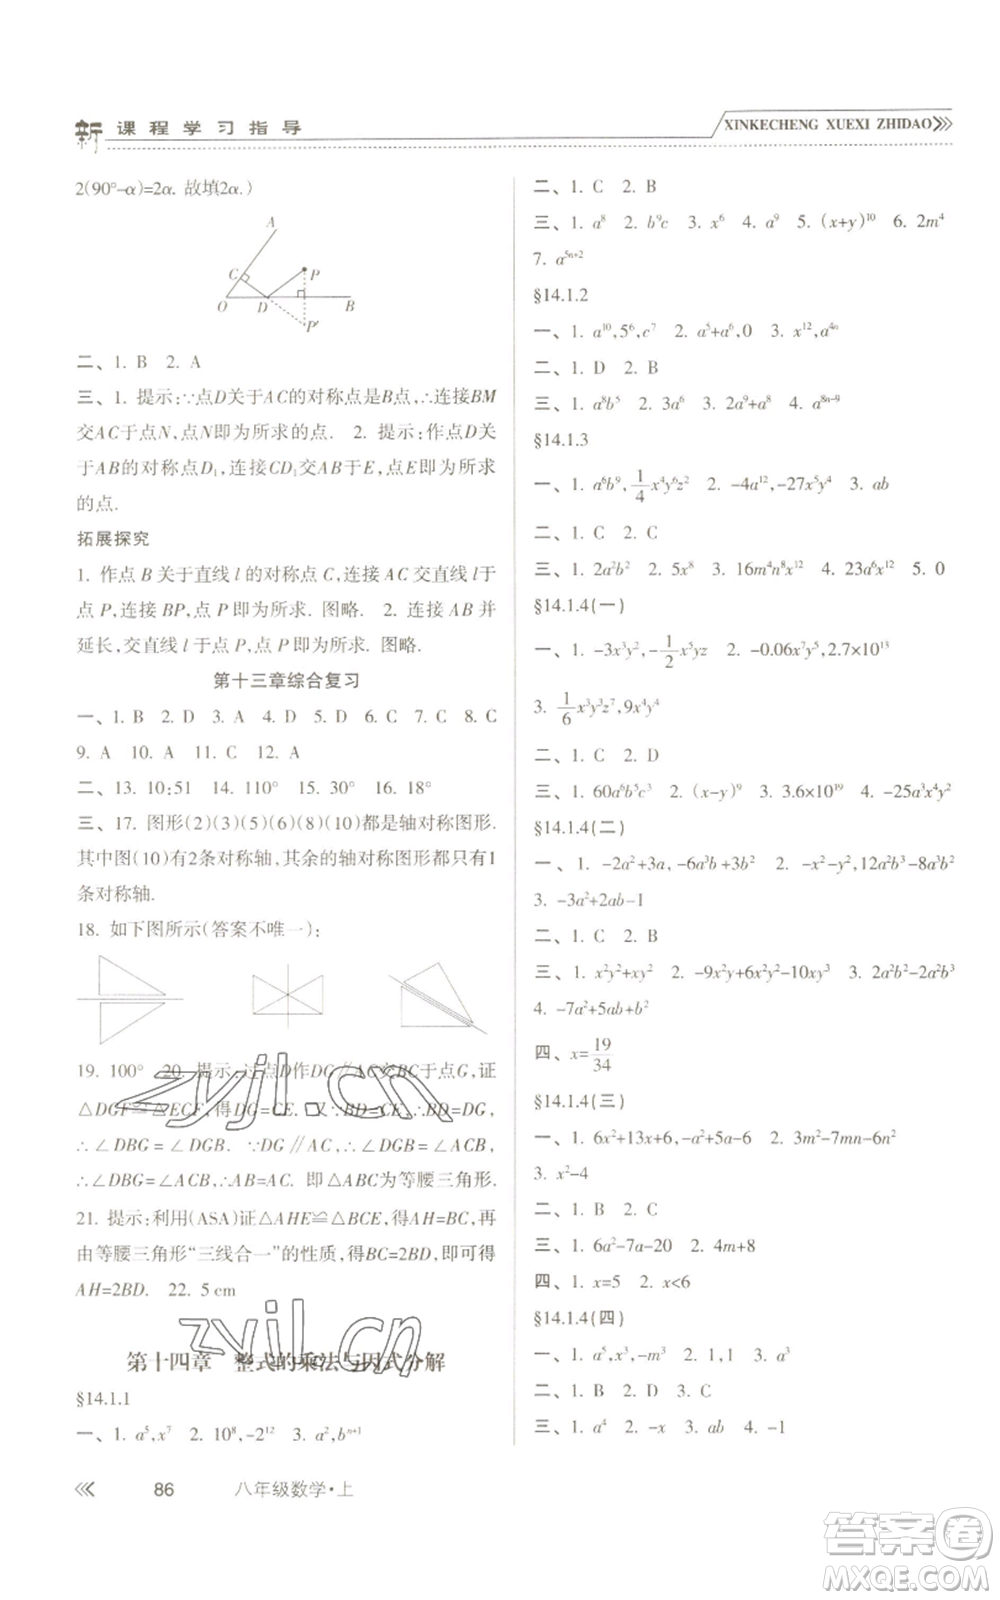 新课程学习指导
XINKECHENG XUEXI ZHIDAO
2(90°-α)=2α. 故填2α.)
A
C
P
O
D
B
P′
二、1. B 2. A
三、1. 提示:∵点D关于AC的对称点是B点,∴连接BM
交AC于点N,点N即为所求的点. 2. 提示:作点D关
于AB的对称点D₁,连接CD₁交AB于E,点E即为所求
的点.
拓展探究
1. 作点B关于直线l的对称点C,连接AC交直线l于
点P,连接BP,点P即为所求. 图略. 2. 连接AB并
延长,交直线l于点P,点P即为所求. 图略.
第十三章综合复习
一、1. B 2. D 3. A 4. D 5. D 6. C 7. C 8. C
9. A 10. A 11. C 12. A
二、13. 10:51 14. 110° 15. 30° 16. 18°
三、17. 图形(2)(3)(5)(6)(8)(10)都是轴对称图形.
其中图(10)有2条对称轴,其余的轴对称图形都只有1
条对称轴.
18. 如下图所示(答案不唯一):
19. 100° 20. 提示:过点D作DG∥AC交BC于点G,证
△DGF≌△ECF,得DG=CE. 又∵BD=CE,∴BD=DG,
∴∠DBG=∠DGB. ∵DG∥AC,∴∠DGB=∠ACB,
∴∠DBG=∠ACB,∴AB=AC. 即△ABC为等腰三角形.
21. 提示:利用(ASA)证△AHE≌△BCE,得AH=BC,再
由等腰三角形“三线合一”的性质,得BC=2BD,即可得
AH=2BD. 22. 5 cm
第十四章 整式的乘法与因式分解
§14.1.1
一、1. a⁵,x⁷ 2. 10⁸,-2¹² 3. a²,bⁿ⁺¹
二、1. C 2. B
三、1. a⁸ 2. b⁹c 3. x⁶ 4. a⁹ 5. (x+y)¹⁰ 6. 2m⁴
7. a⁵ⁿ⁺²
§14.1.2
一、1. a¹⁰,5⁶,c⁷ 2. a⁵+a⁶,0 3. x¹²,a⁴ⁿ
二、1. D 2. B
三、1. a⁸b⁵ 2. 3a⁶ 3. 2a⁹+a⁸ 4. a⁸ⁿ⁻⁹
§14.1.3
一、1. a⁶b⁹,1/4x⁴y⁶z² 2. -4a¹²,-27x⁵y⁴ 3. ab
二、1. C 2. C
三、1. 2a²b² 2. 5x⁸ 3. 16m⁴n⁸x¹² 4. 23a⁶x¹² 5. 0
§14.1.4(一)
一、1. -3x³y²,-1/2x⁵y³z 2. -0.06x⁷y⁵,2.7×10¹³
3. 1/6x³y³z⁷,9x⁴y⁴
二、1. C 2. D
三、1. 60a⁶b⁵c³ 2. (x-y)⁹ 3. 3.6×10¹⁹ 4. -25a³x⁴y²
§14.1.4(二)
一、1. -2a²+3a,-6a³b+3b² 2. -x²-y²,12a²b³-8a³b²
3. -3a²+2ab-1
二、1. C 2. B
三、1. x²y²+xy 2. -9x²y+6x²y²-10xy³ 3. 2a²b³
4. -7a²+5ab+b²
四、x=19/34
§14.1.4(三)
一、1. 6x²+13x+6,-5a²+5a-6 2. m²-7mn-6n²
3. x²-4
二、1. B 2. C
三、1. 6a²-7a-20 2. 4m+8
四、1. x=5 2. x<6
§14.1.4(四)
一、1. a⁵,x³,-m³ 2. 1,1 3. a³
二、1. B 2. D
三、1. a⁴ 2. -x 3. ab 4. -1
86 八年级数学·上
zyjl.cn
zyjl.cn
答案圈
MXQE.COM